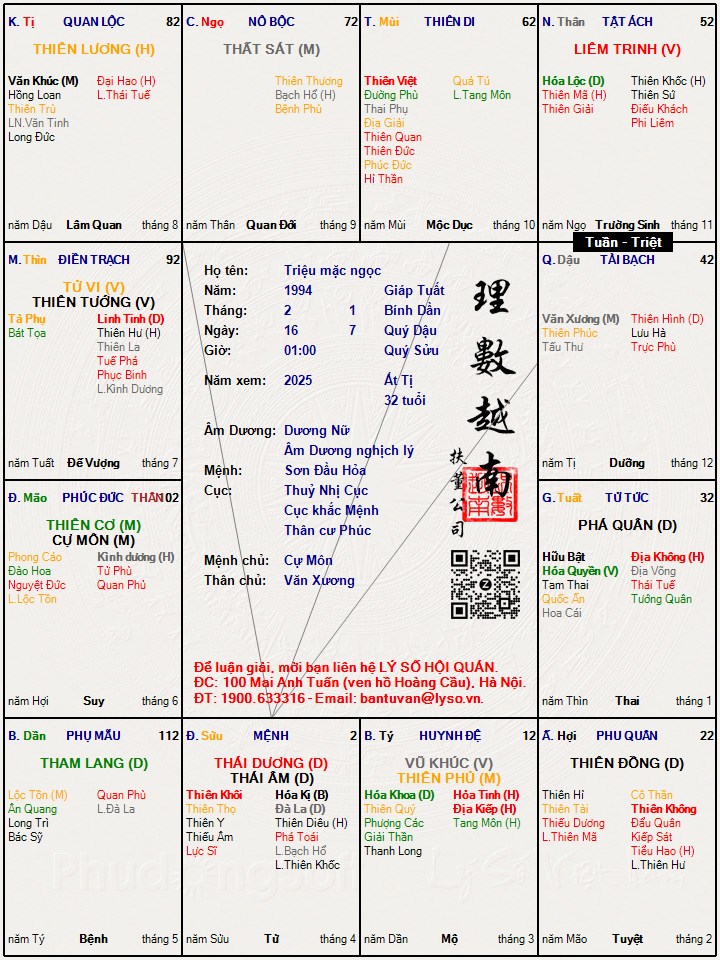 K. Tị QUAN LỘC 82
THIÊN LƯƠNG (H)
Văn Khúc (M) Đại Hao (H)
Hồng Loan L.Thái Tuế
Thiên Trù
LN.Văn Tinh
Long Đức
năm Dậu Lâm Quan tháng 8
C. Ngọ NÔ BỘC 72
THẤT SÁT (M)
Thiên Thương
Bạch Hổ (H)
Bệnh Phù
năm Thân Quan Đới tháng 9
T. Mùi THIÊN DI 62
Thiên Việt Quả Tú
Đường Phù L.Tang Môn
Thai Phụ
Địa Giải
Thiên Quan
Thiên Đức
Phúc Đức
Hỉ Thần
năm Mùi Mộc Dục tháng 10
N. Thân TẬT ÁCH 52
LIÊM TRINH (V)
Hóa Lộc (D) Thiên Khốc (H)
Thiên Mã (H) Thiên Sứ
Thiên Giải Điếu Khách
Phi Liêm
năm Ngọ Trường Sinh tháng 11
Tuần - Triệt
M. Thìn ĐIỀN TRẠCH 92
TỬ VI (V)
THIÊN TƯỚNG (V)
Tả Phụ Linh Tinh (D)
Bát Tọa Thiên Hư (H)
Thiên La
Tuế Phá
Phục Binh
L.Kình Dương
năm Tuất Đế Vượng tháng 7
Họ tên: Triệu mặc ngọc
Năm: 1994 Giáp Tuất
Tháng: 2 1 Bính Dần
Ngày: 16 7 Quý Dậu
Giờ: 01:00 Quý Sửu
Năm xem: 2025 Ất Tị
32 tuổi
Âm Dương: Dương Nữ
Âm Dương nghịch lý
Mệnh: Sơn Đầu Hỏa
Cục: Thuỷ Nhị Cục
Cục khắc Mệnh
Thân cư Phúc
Mệnh chủ: Cự Môn
Thân chủ: Văn Xương
理數越南
扶董公司
Để luận giải, mời bạn liên hệ LÝ SỐ HỘI QUÁN.
ĐC: 100 Mai Anh Tuấn (ven hồ Hoàng Cầu), Hà Nội.
ĐT: 1900.633316 - Email: bantuvan@lyso.vn.
Q. Dậu TÀI BẠCH 42
Văn Xương (M) Thiên Hình (D)
Thiên Phúc Lưu Hà
Tấu Thư Trực Phù
năm Tị Dưỡng tháng 12
Đ. Mão PHÚC ĐỨC THÂN 102
THIÊN CƠ (M)
CỰ MÔN (M)
Phong Cáo Kình dương (H)
Đào Hoa Tử Phù
Nguyệt Đức Quan Phủ
L.Lộc Tồn
năm Hợi Suy tháng 6
G. Tuất TỬ TỨC 32
PHÁ QUÂN (D)
Hữu Bật Địa Không (H)
Hóa Quyền (V) Địa Võng
Tam Thai Thái Tuế
Quốc Ấn Tướng Quân
Hoa Cái
năm Thìn Thai tháng 1
B. Dần PHỤ MẪU 112
THAM LANG (D)
Lộc Tồn (M) Quan Phù
Ân Quang L.Đà La
Long Trì
Bác Sỹ
năm Tý Bệnh tháng 5
Đ. Sửu MỆNH 2
THÁI DƯƠNG (D)
THÁI ÂM (D)
Thiên Khôi Hóa Kị (B)
Thiên Thọ Đà La (D)
Thiên Y Thiên Diêu (H)
Thiếu Âm Phá Toái
Lực Sĩ L.Bạch Hổ
L.Thiên Khốc
năm Sửu Tử tháng 4
B. Tý HUYNH ĐỆ 12
VŨ KHÚC (V)
THIÊN PHỦ (M)
Hóa Khoa (D) Hỏa Tinh (H)
Thiên Quý Địa Kiếp (H)
Phượng Các Tang Môn (H)
Giải Thần
Thanh Long
năm Dần Mộ tháng 3
Ấ. Hợi PHU QUÂN 22
THIÊN ĐỒNG (D)
Thiên Hỉ Cô Thần
Thiên Tài Thiên Không
Thiếu Dương Đẩu Quân
L.Thiên Mã Kiếp Sát
Tiểu Hao (H)
L.Thiên Hư
năm Mão Tuyệt tháng 2